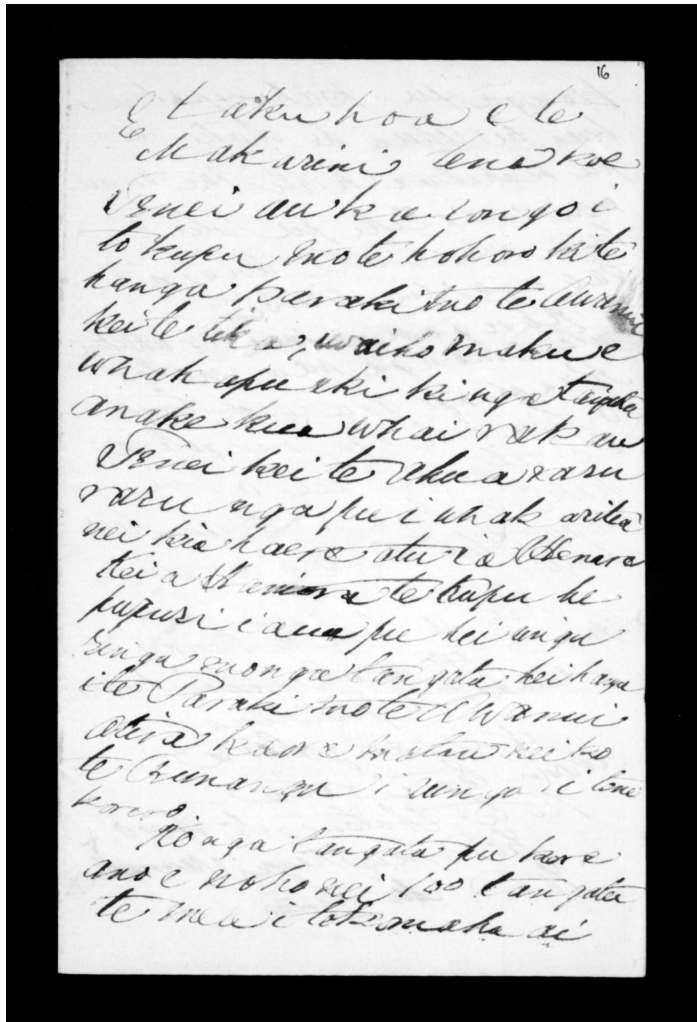 16
E taku hoa e te
Makarini, tena koe
Tenei au ka rongo i
to kupu mote hohoro kite
hanga Paraki mo te Awanui
kei te tika, waiho maku e
whakapu aki ki nga tangata
anake kua whai rakau
Tenei kei te ahua raru
raru nga pu i whakaritea
nei kia haere atu i a Henare
kei a te kupu he
pupuri i aua pu hei ringa
ringa mo nga tangata kei hanga
i te Paraki mo te Awanui
otira kaore matau kei ko
te Runanga i runga i tona
korero
Ko nga tangata pu kore
ano e noho nei 100 tangata
te mea i tokomaha ai